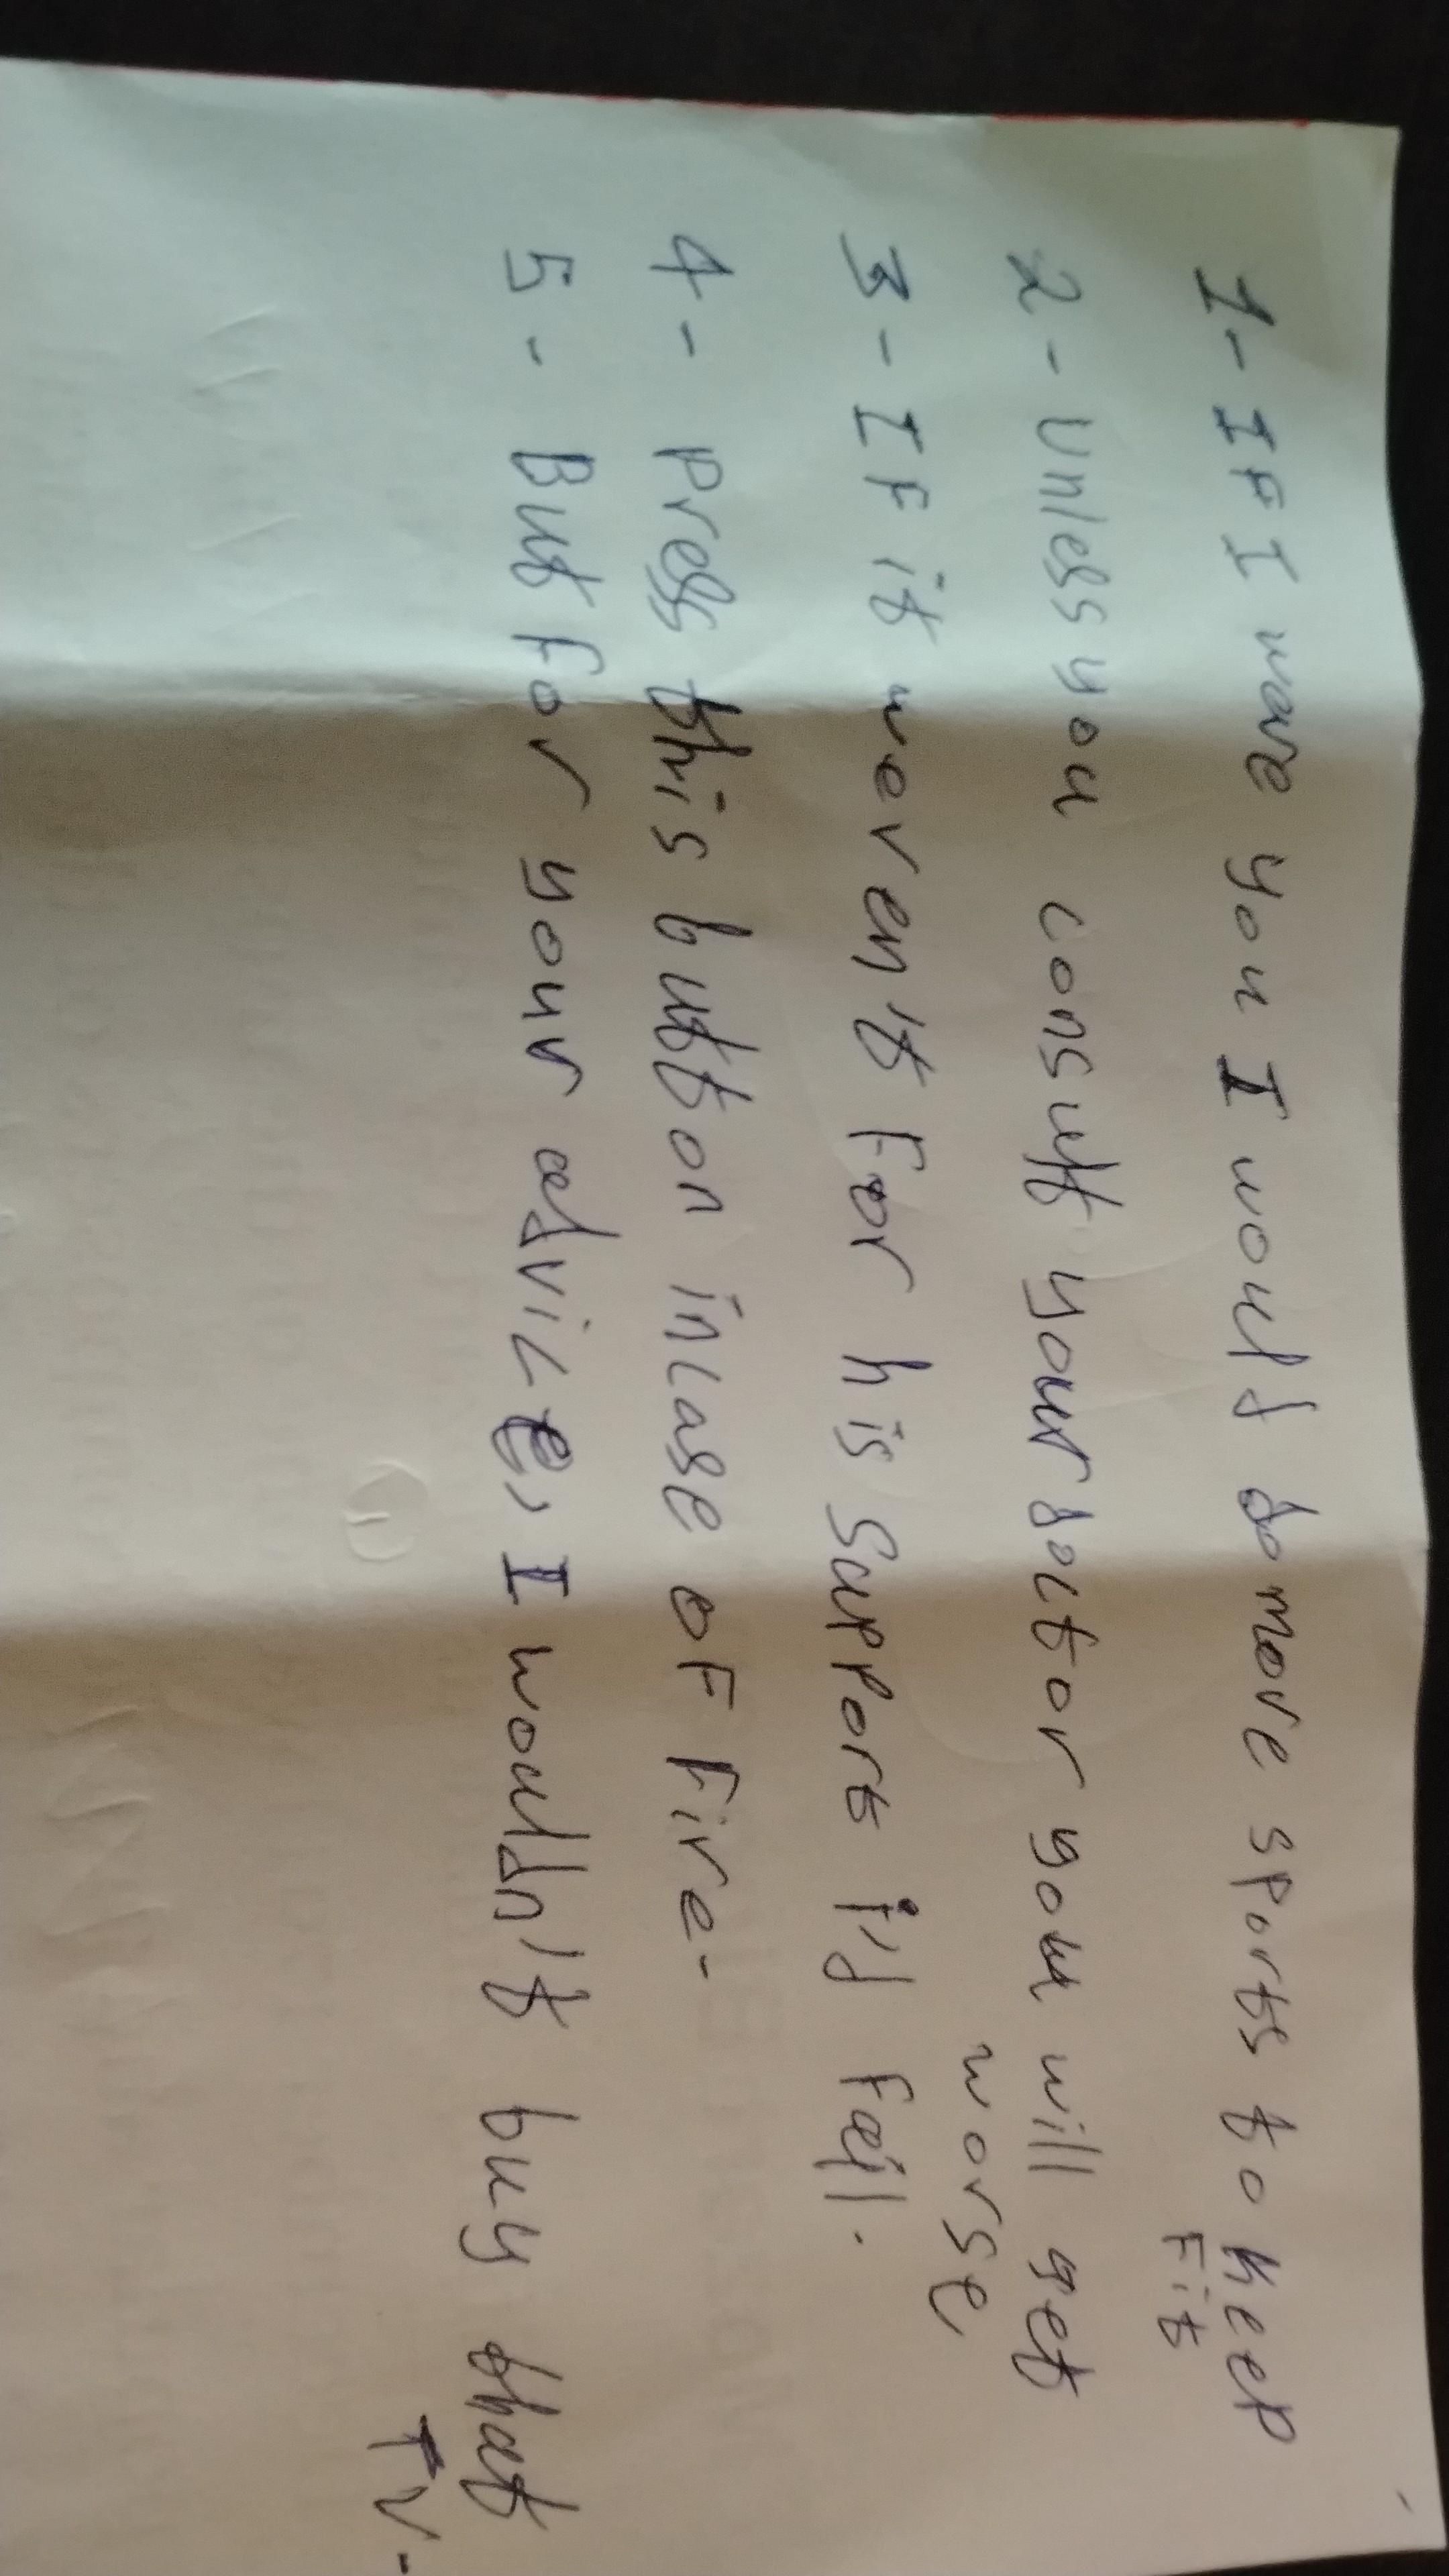 1- IF I were you I would do more sports to keep
Fit
2 - Unless you consult your doctor you will get
worse
3 - IF it weren't For his Support I'd Fail.
4 - press this button incase oF Fire-
5 - But For your advice, I wouldn't buy that
TV-